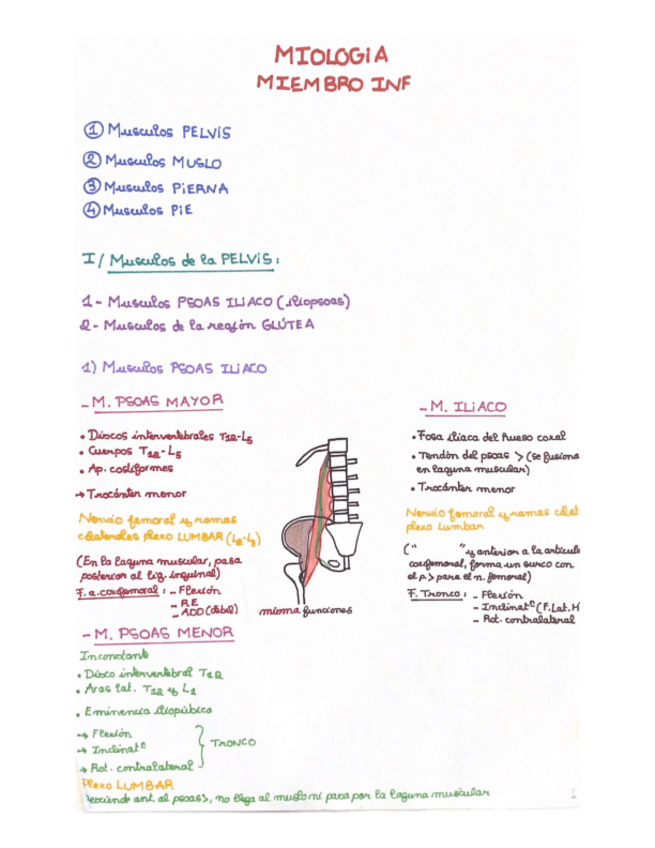 MIOLOGIA
MIEMBRO INF
① Musculos PELVIS
② Musculos MUSLO
③ Musculos PIERNA
④ Musculos PIE
I/ Musculos de la PELVIS:
1- Musculos PSOAS ILIACO (iliopsoas)
2- Musculos de la región GLÚTEA
1) Musculos PSOAS ILIACO
- M. PSOAS MAYOR
• Discos intervertebrales T12-L5
• Cuerpos T12-L5
• Ap. costiformes
→ Trocánter menor
Nervio femoral y ramas
colaterales plexo LUMBAR (L2-L3)
(En la laguna muscular, pasa
posterior al lig. inguinal)
F. a. coxofemoral: - Flexión
- RE
- ADD (débil)
- M. ILIACO
• Fosa iliaca del hueso coxal
• Tendón del psoas > (se fusiona
en laguna muscular)
• Trocánter menor
Nervio femoral y ramas colat
plexo Lumbar
(" " y anterior a la articula
coxofemoral, forma un surco con
el p> para el n. femoral)
F. Tronco: - Flexión
- Inclinat° (F. Lat. H
- Rot. contralateral
misma funciones
- M. PSOAS MENOR
Inconstante
• Disco intervertebral T12
• Aras lat. T12 y L1
• Eminencia iliopúbica
→ Flexión
→ Inclinat°
→ Rot. contralateral
TRONCO
Plexo LUMBAR
ant. al psoas>, no llega al muslo ni pasa por la laguna muscular
1